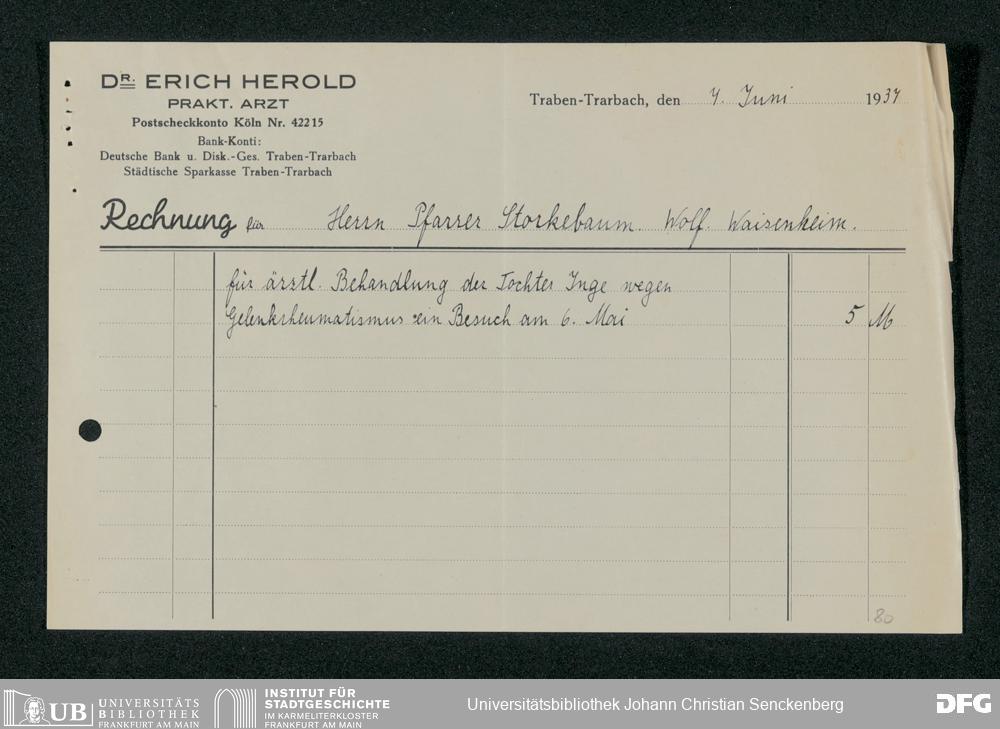 DR. ERICH HEROLD
PRAKT. ARZT
Postscheckkonto Köln Nr. 42215
Bank-Konti:
Deutsche Bank u. Disk.-Ges. Traben-Trarbach
Städtische Sparkasse Traben-Trarbach
Traben-Trarbach, den 4. Juni 1934
Rechnung für Herrn Pfarrer Storkebaum. Wolf. Waisenheim.
für ärztl. Behandlung der Tochter Inge wegen
Gelenkrheumatismus ein Besuch am 6. Mai 5 M
80
UB UNIVERSITÄTS
BIBLIOTHEK
FRANKFURT AM MAIN
INSTITUT FÜR
STADTGESCHICHTE
IM KARMELITERKLOSTER
FRANKFURT AM MAIN
Universitätsbibliothek Johann Christian Senckenberg
DFG